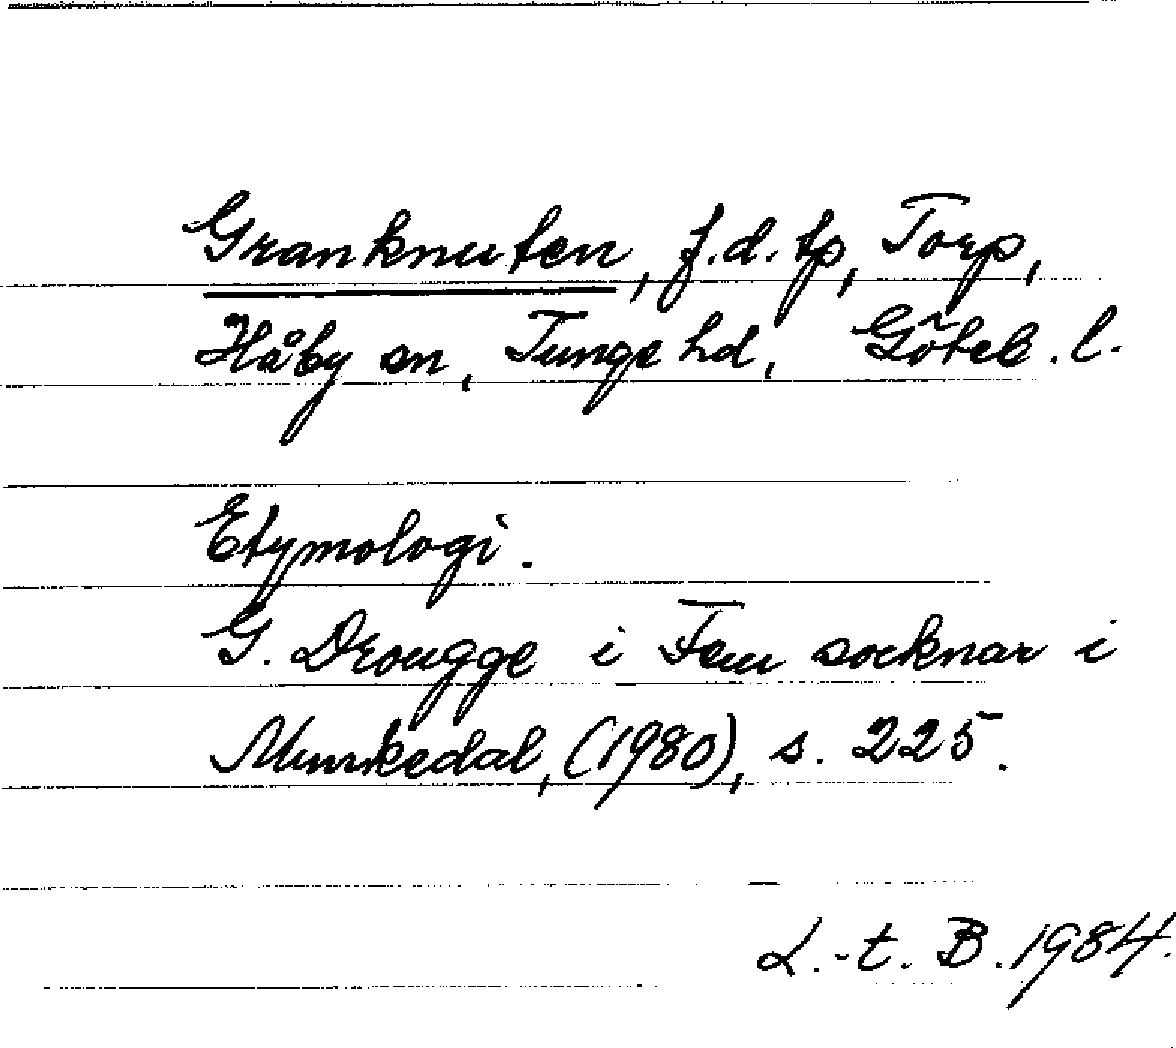 Granknuten, f.d. tp, Torp,
Håby sn, Tunge hd, Göteb. l.
Etymologi.
G. Drougge i Fem socknar i
Munkedal, (1980), s. 225.
L.-t. B. 1984.